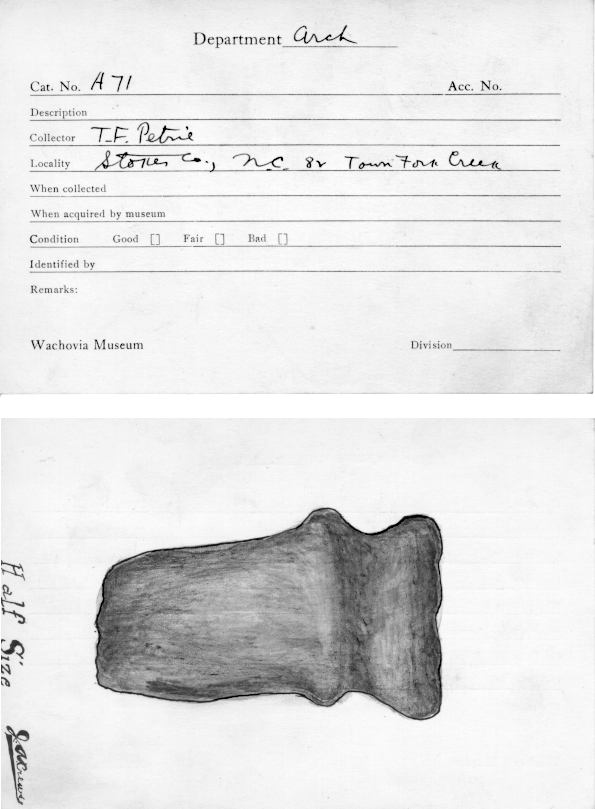 Department Arch
Cat. No. A 71 Acc. No.
Description
Collector T.F. Petrie
Locality Stokes Co., N.C. 82 Town Fork Creek
When collected
When acquired by museum
Condition Good [] Fair [] Bad []
Identified by
Remarks:
Wachovia Museum Division
Half Size